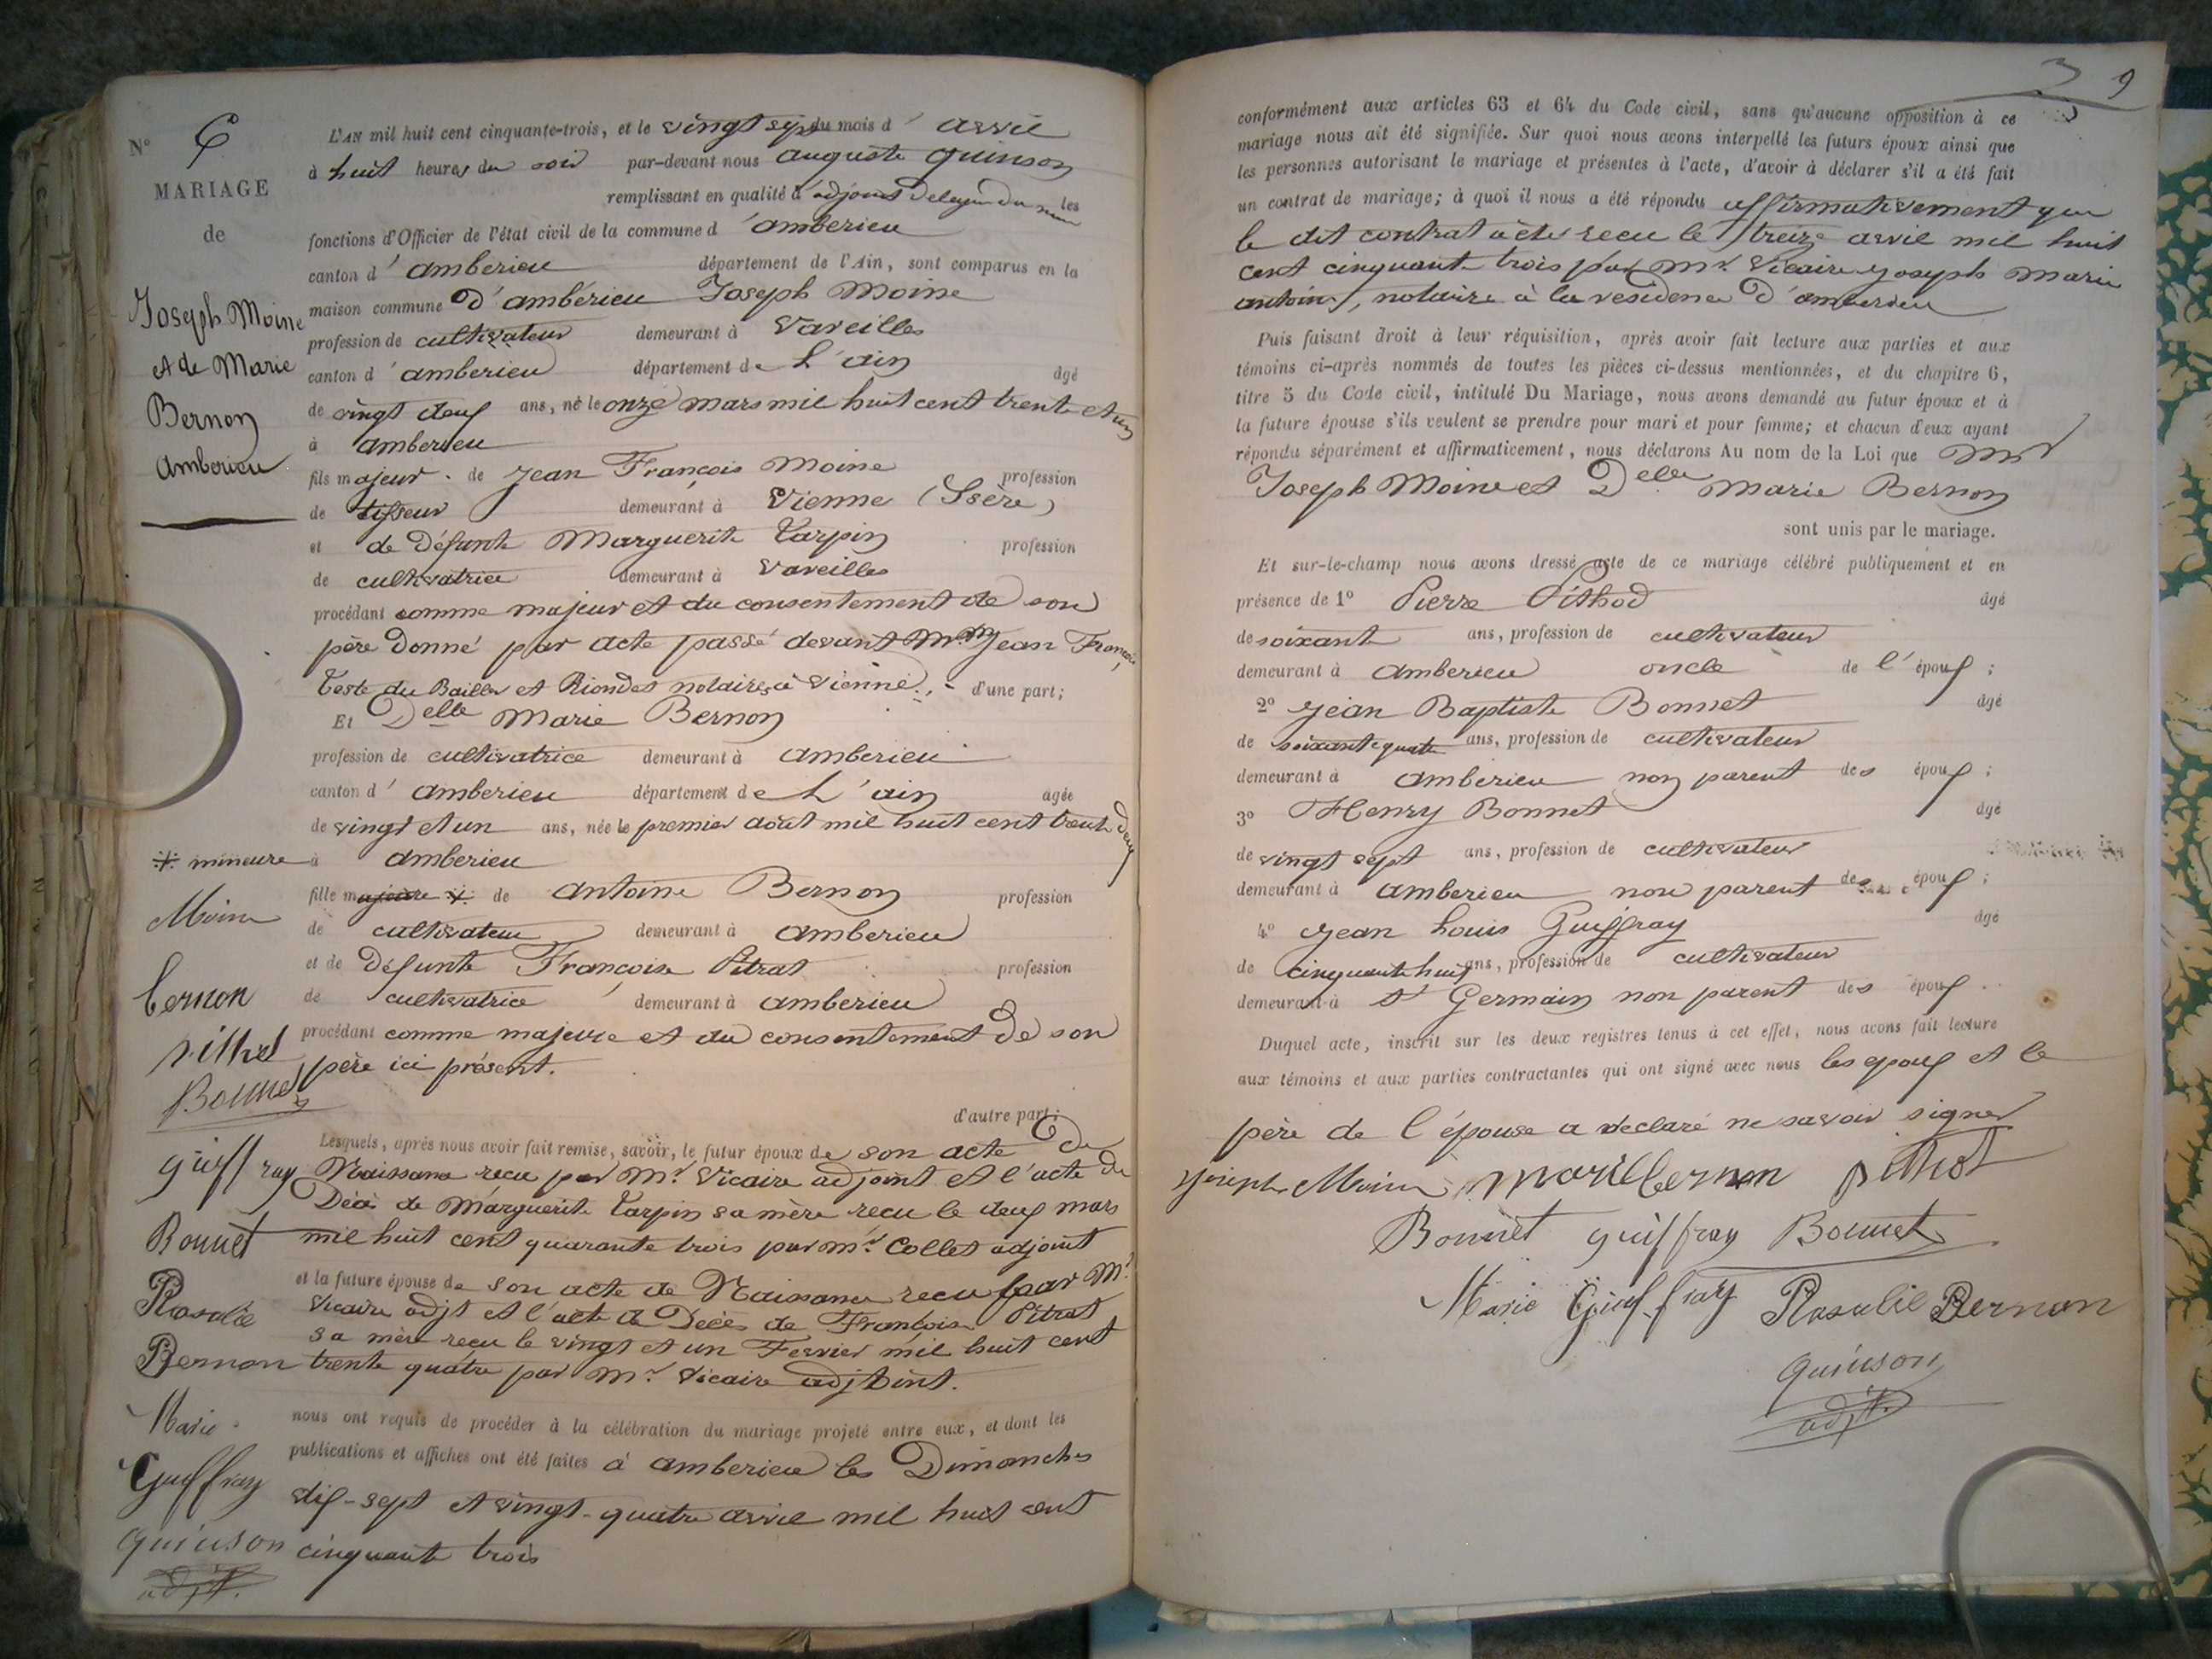 N° 6
MARIAGE
de
Joseph Moine
et de Marie
Bernon
Amberieu
L'AN mil huit cent cinquante-trois, et le vingt sept du mois d'avril
à huit heures du soir par-devant nous auguste Quinson
remplissant en qualité d'adjoint délégué du les
fonctions d'Officier de l'état civil de la commune d'amberieu
canton d'amberieu département de l'Ain, sont comparus en la
maison commune D'ambérieu Joseph Moine
profession de cultivateur demeurant à Vareilles
canton d'amberieu département de L'ain âgé
de vingt deux ans, né le onze mars mil huit cent trente et un
à amberieu
fils majeur de Jean François Moine profession
de tisseur demeurant à Vienne (Isère)
et de Défunte Marguerite Tarpin profession
de cultivatrice demeurant à Vareilles
procédant comme majeur et du consentement de son
père Donné par acte passé devant Jean François
Teste du Bailler et Riondet notaires à Vienne, d'une part;
Et Delle Marie Bernon
profession de cultivatrice demeurant à amberieu
canton d'amberieu département de L'ain agée
de vingt et un ans, née le premier aout mil huit cent trente deux
* mineure à amberieu
fille majeure * de Antoine Bernon profession
de cultivateur demeurant à amberieu
et de Défunte Françoise Pitrat profession
de cultivatrice demeurant à amberieu
procédant comme majeure et du consentement De son
père ici présent.
d'autre part;
Lesquels, après nous avoir fait remise, savoir, le futur époux de son acte De
Naissance recu par Mr Vicaire adjoint et l'acte du
Décès de Marguerite Tarpin sa mère recu le deux mars
mil huit cent quarante trois par Mr Collet adjoint
et la future épouse de son acte de Naissance recu par Mr
Vicaire adjt et l'acte de Décès de Françoise Pitrat
sa mère reçu le vingt et un Fevrier mil huit cent
trente quatre par Mr Vicaire adjoint.
nous ont requis de procéder à la célébration du mariage projeté entre eux, et dont les
publications et affiches ont été faites à amberieu les Dimanches
dix-sept et vingt-quatre avril mil huit cent
cinquante trois
Moine
Bernon
pithod
Bonnet
guiffray
Bonnet
Rosalie
Bernon
Marie
Guiffray
quinson
adjt.
9
conformément aux articles 63 et 64 du Code civil, sans qu'aucune opposition à ce
mariage nous ait été signifiée. Sur quoi nous avons interpellé les futurs époux ainsi que
les personnes autorisant le mariage et présentes à l'acte, d'avoir à déclarer s'il a été fait
un contrat de mariage; à quoi il nous a été répondu affirmativement que
le dit contrat a été recu le treize avril mil huit
cent cinquante trois par Mr Vicaire Joseph Marie
antoine, notaire à la residence D'amberieu
Puis faisant droit à leur réquisition, après avoir fait lecture aux parties et aux
témoins ci-après nommés de toutes les pièces ci-dessus mentionnées, et du chapitre 6,
titre 5 du Code civil, intitulé Du Mariage, nous avons demandé au futur époux et à
la future épouse s'ils veulent se prendre pour mari et pour femme; et chacun d'eux ayant
répondu séparément et affirmativement, nous déclarons Au nom de la Loi que Mr
Joseph Moine et Delle Marie Bernon
sont unis par le mariage.
Et sur-le-champ nous avons dressé acte de ce mariage célébré publiquement et en
présence de 1° Pierre Pithod âgé
de soixante ans, profession de cultivateur
demeurant à amberieu oncle de l'époux;
2° Jean Baptiste Bonnet âgé
de soixante quatre ans, profession de cultivateur
demeurant à amberieu non parent des époux;
3° Henry Bonnet âgé
de vingt sept ans, profession de cultivateur
demeurant à amberieu non parent des époux;
4° Jean Louis Guiffray âgé
de cinquante huit ans, profession de cultivateur
demeurant à St Germain non parent des époux.
Duquel acte, inscrit sur les deux registres tenus à cet effet, nous avons fait lecture
aux témoins et aux parties contractantes qui ont signé avec nous les epoux et le
père de l'épouse a declaré ne savoir signer
joseph Moine marie bernon pithod
Bonnet guiffray Bonnet
Marie Guiffray Rosalie Bernon
quinson
adjt.